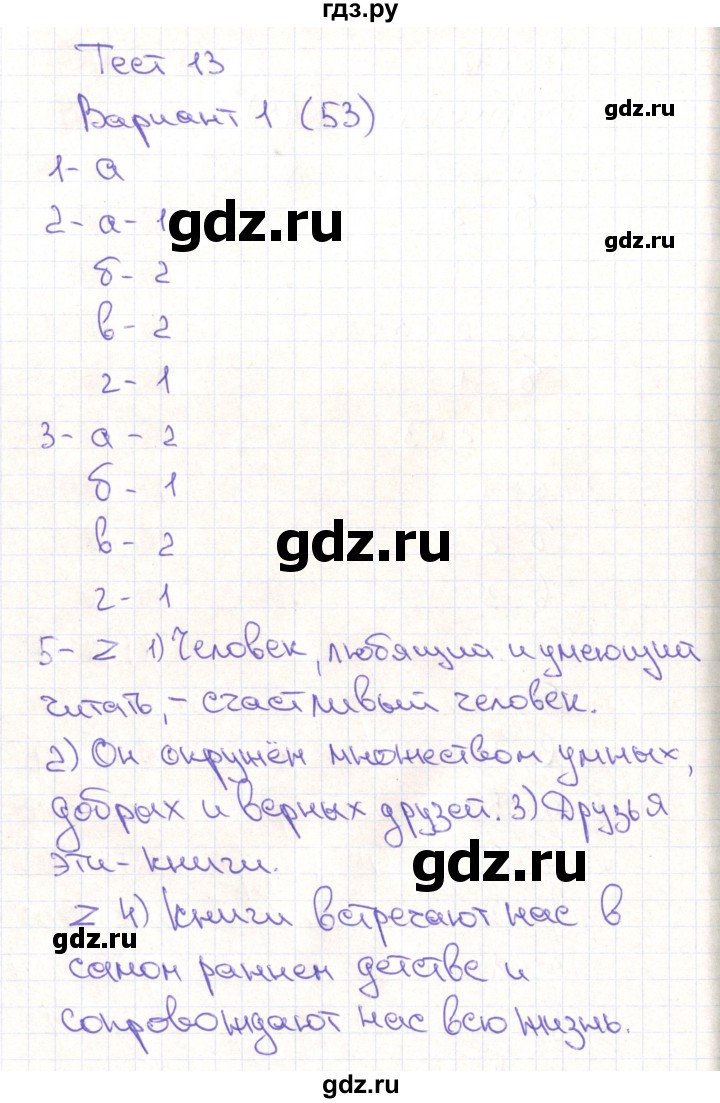 гдз.ру
Тест 13
Вариант 1 (53)
gdz.ru
1- а
2- а- 1
gdz.ru
gdz.ru
б- 2
в- 2
г- 1
3- а - 2
б - 1
в - 2
gdz.ru
г - 1
5- Z 1) Человек, любящий и умеющий
читать, - счастливый человек.
2) Он окружён множеством умных,
добрых и верных друзей. 3) Друзья
эти - книги.
gdz.ru
Z 4) Книги встречают нас в
gdz.ru
самом раннем детстве и
сопровождают нас всю жизнь.
gdz.ru